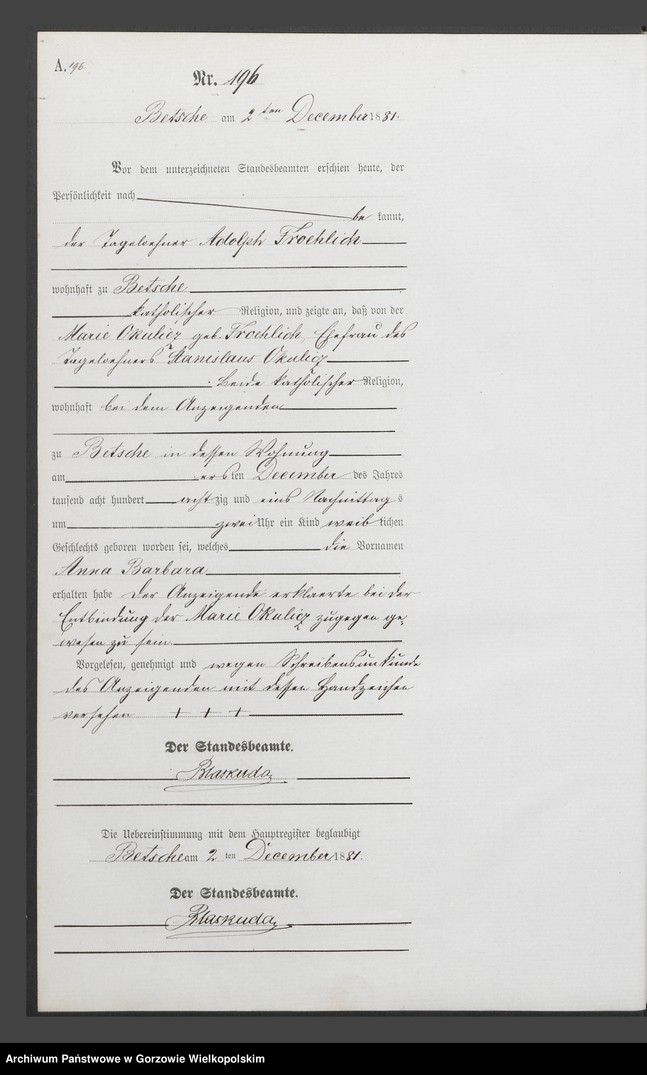 A. 196
Nr. 196
Betsche am 2 ten December 1881.
Vor dem unterzeichneten Standesbeamten erschien heute, der
Persönlichkeit nach
be kannt,
der Tageloehner Adolph Froehlich
wohnhaft zu Betsche
katholischer Religion, und zeigte an, daß von der
Marie Okulicz geb. Froehlich, Ehefrau des
Tageloehners Stanislaus Okulicz
beide katholischer Religion,
wohnhaft bei dem Anzeigenden
zu Betsche in dessen Wohnung
am ersten December des Jahres
tausend acht hundert achtzig und eins Nachmittags
um zwei Uhr ein Kind weiblichen
Geschlechts geboren worden sei, welches die Vornamen
Anna Barbara
erhalten habe Der Anzeigende erklaerte bei der
Entbindung der Marie Okulicz zugegen ge-
wesen zu sein
Vorgelesen, genehmigt und wegen Schreibensunkunde
des Anzeigenden mit dessen Handzeichen
versehen + + +
Der Standesbeamte.
Die Uebereinstimmung mit dem Hauptregister beglaubigt
Betsche am 2 ten December 1881.
Der Standesbeamte.
Archiwum Państwowe w Gorzowie Wielkopolskim